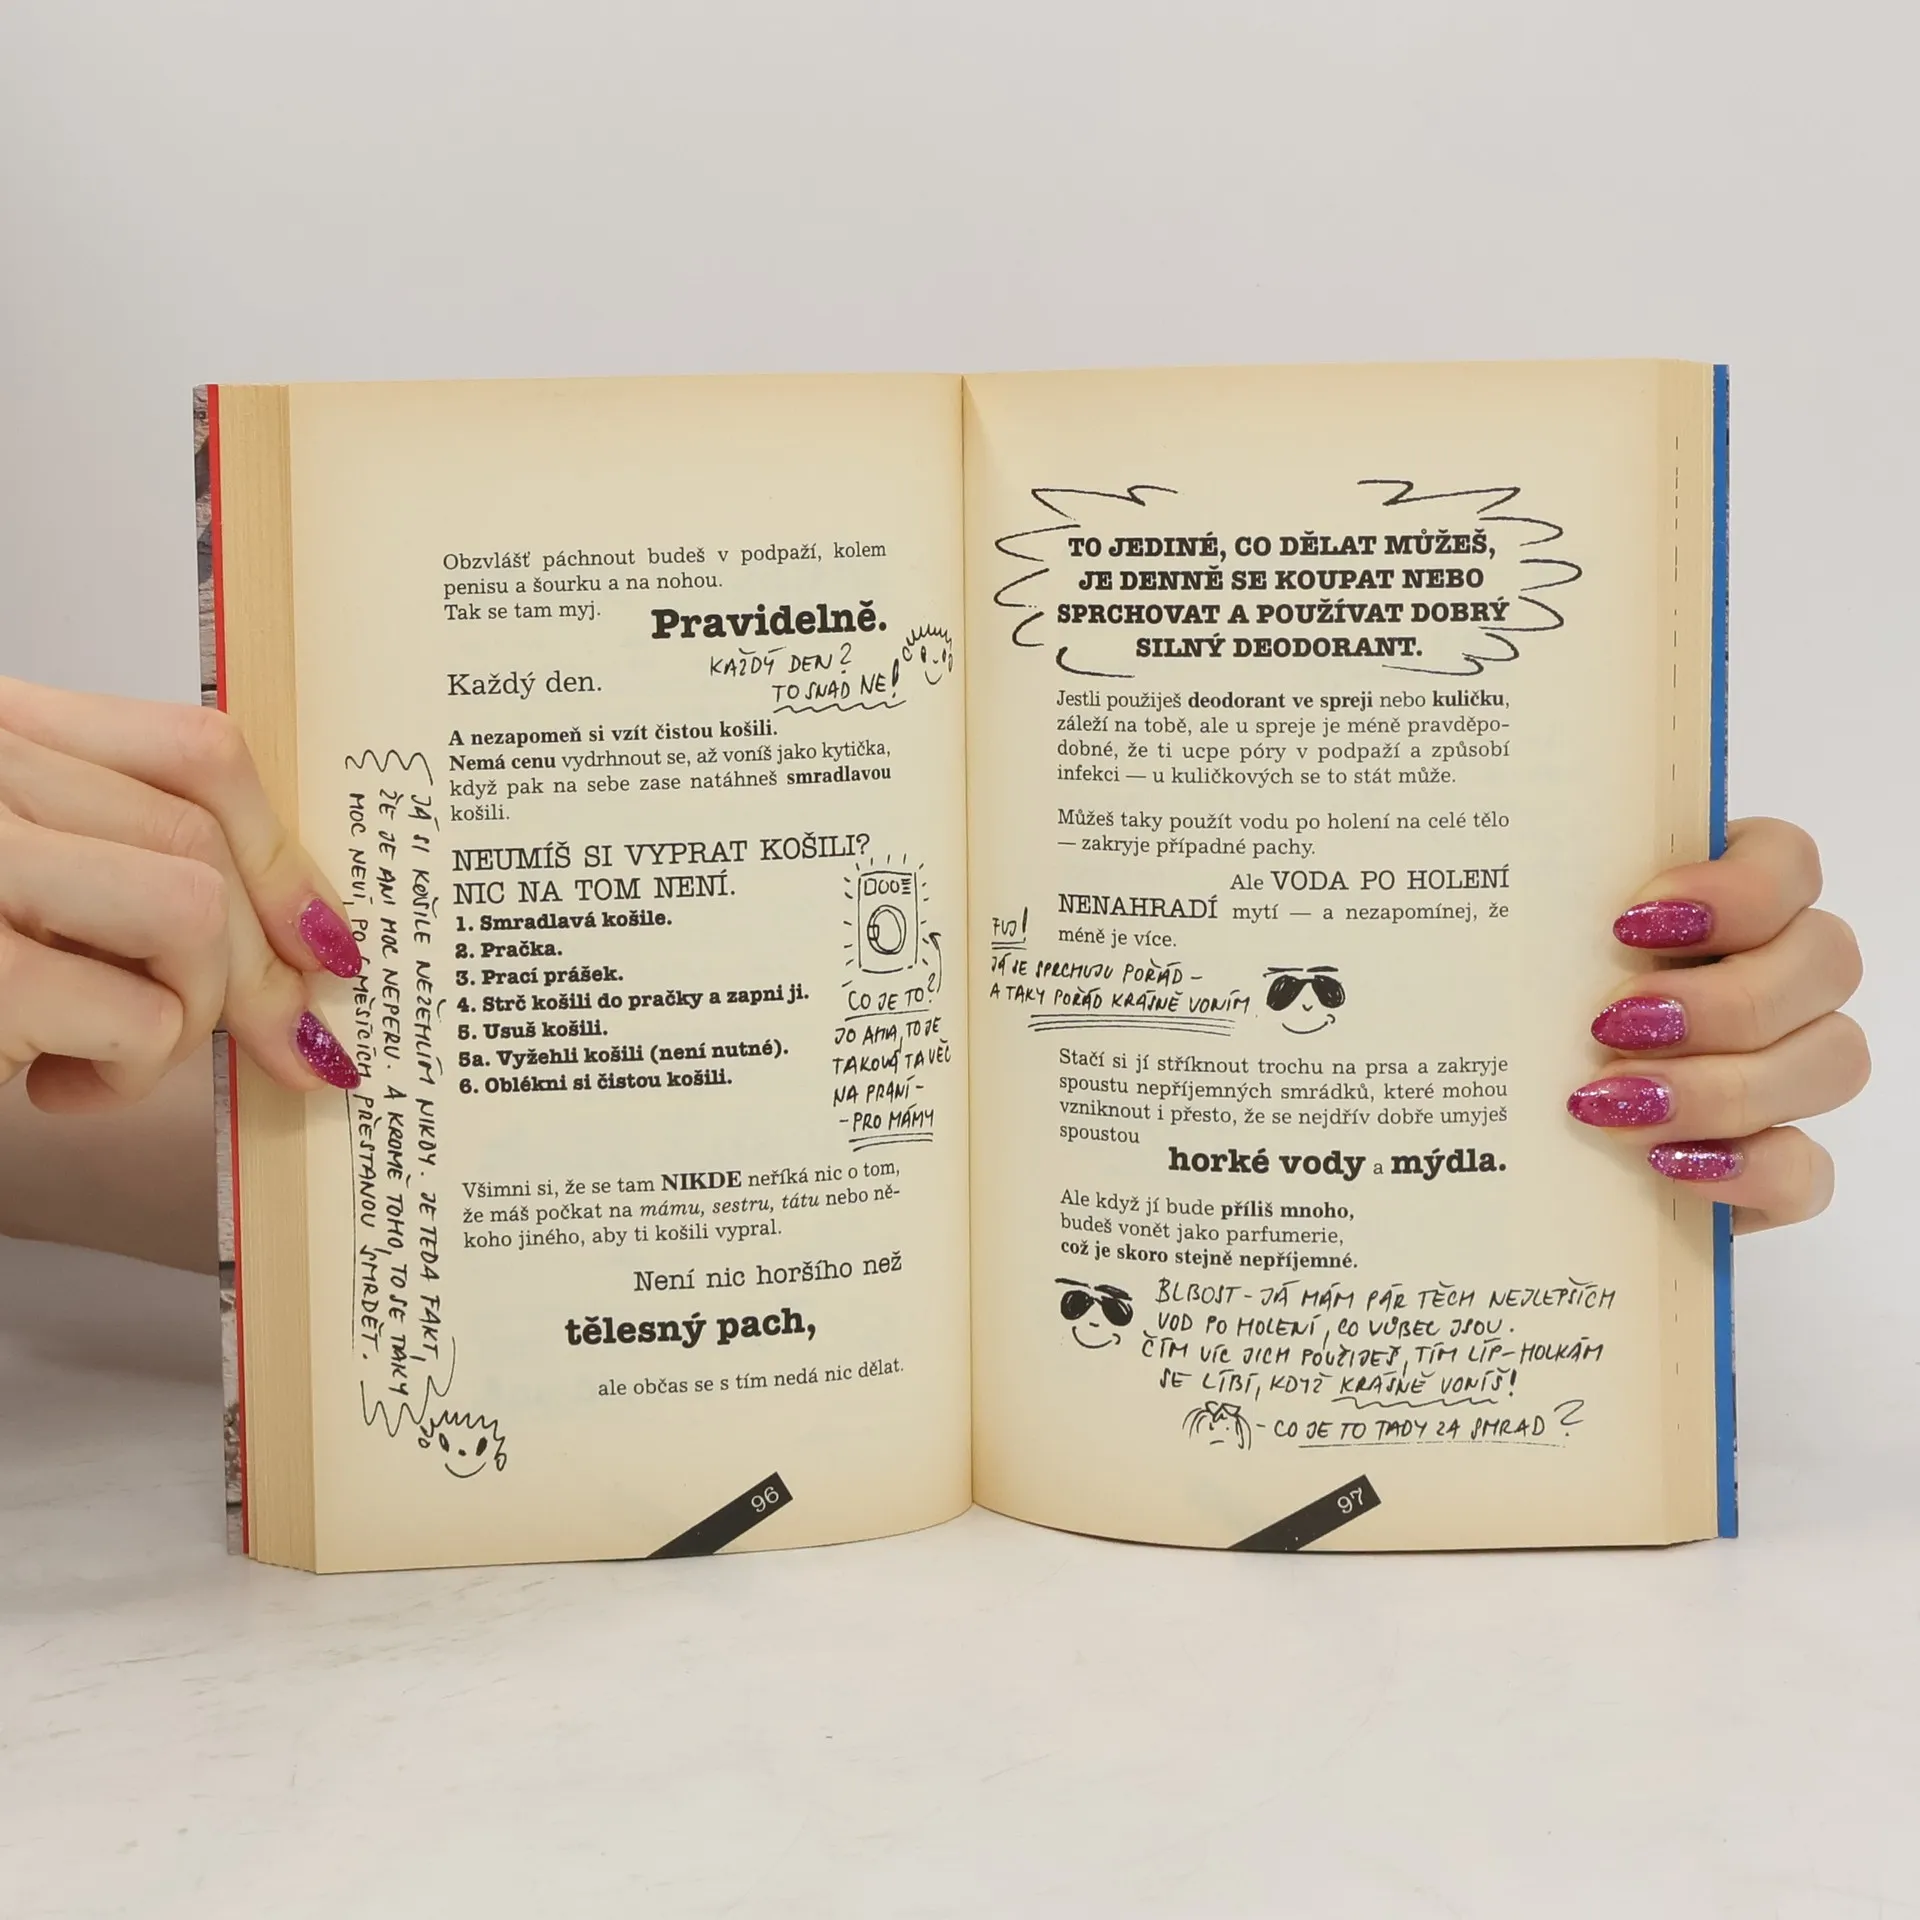 Obzvlášť páchnout budeš v podpaží, kolem
penisu a šourku a na nohou.
Tak se tam myj.
Pravidelně.
Každý den.
KAŽDÝ DEN?
TO SNAD NE!
A nezapomeň si vzít čistou košili.
Nemá cenu vydrhnout se, až voníš jako kytička,
když pak na sebe zase natáhneš smradlavou
košili.
NEUMÍŠ SI VYPRAT KOŠILI?
NIC NA TOM NENÍ.
1. Smradlavá košile.
2. Pračka.
3. Prací prášek.
4. Strč košili do pračky a zapni ji.
5. Usuš košili.
5a. Vyžehli košili (není nutné).
6. Oblékni si čistou košili.
CO JE TO?
JO AHA, TO JE
TAKOVÁ TA VĚC
NA PRANÍ-
-PRO MÁMY
JÁ SI KOŠILE NEŽEHLÍM NIKDY. JE TEDA FAKT,
ŽE JE ANI MOC NEPERU. A KROMĚ TOHO, TO SE TAKY
MOC NEVÍ, PO MĚSÍCÍCH PŘESTANOU SMRDĚT.
Všimni si, že se tam NIKDE neříká nic o tom,
že máš počkat na mámu, sestru, tátu nebo ně-
koho jiného, aby ti košili vypral.
Není nic horšího než
tělesný pach,
ale občas se s tím nedá nic dělat.
96
TO JEDINÉ, CO DĚLAT MŮŽEŠ,
JE DENNĚ SE KOUPAT NEBO
SPRCHOVAT A POUŽÍVAT DOBRÝ
SILNÝ DEODORANT.
Jestli použiješ deodorant ve spreji nebo kuličku,
záleží na tobě, ale u spreje je méně pravděpo-
dobné, že ti ucpe póry v podpaží a způsobí
infekci — u kuličkových se to stát může.
Můžeš taky použít vodu po holení na celé tělo
— zakryje případné pachy.
Ale VODA PO HOLENÍ
NENAHRADÍ mytí — a nezapomínej, že
méně je více.
FUJ!
JÁ SE SPRCHUJU POŘÁD -
A TAKY POŘÁD KRÁSNĚ VONÍM.
Stačí si jí stříknout trochu na prsa a zakryje
spoustu nepříjemných smrádků, které mohou
vzniknout i přesto, že se nejdřív dobře umyješ
spoustou
horké vody a mýdla.
Ale když jí bude příliš mnoho,
budeš vonět jako parfumerie,
což je skoro stejně nepříjemné.
BLBOST - JÁ MÁM PÁR TĚCH NEJLEPŠÍCH
VOD PO HOLENÍ, CO VŮBEC JSOU.
ČÍM VÍC JICH POUŽIJEŠ, TÍM LÍP - HOLKÁM
SE LÍBÍ, KDYŽ KRÁSNĚ VONÍŠ!
- CO JE TO TADY ZA SMRAD?
97